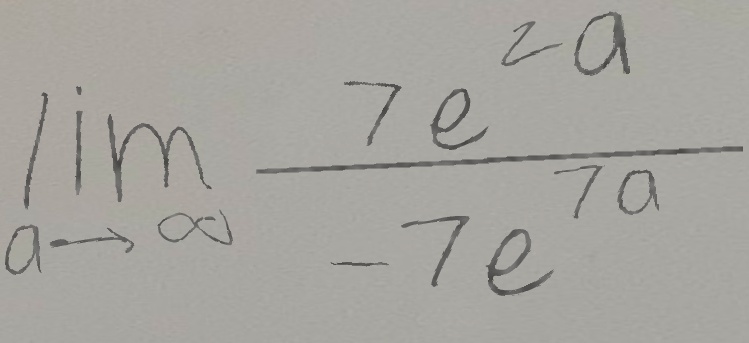 \lim_{a \to \infty} \frac{7e^{2a}}{-7e^{7a}}